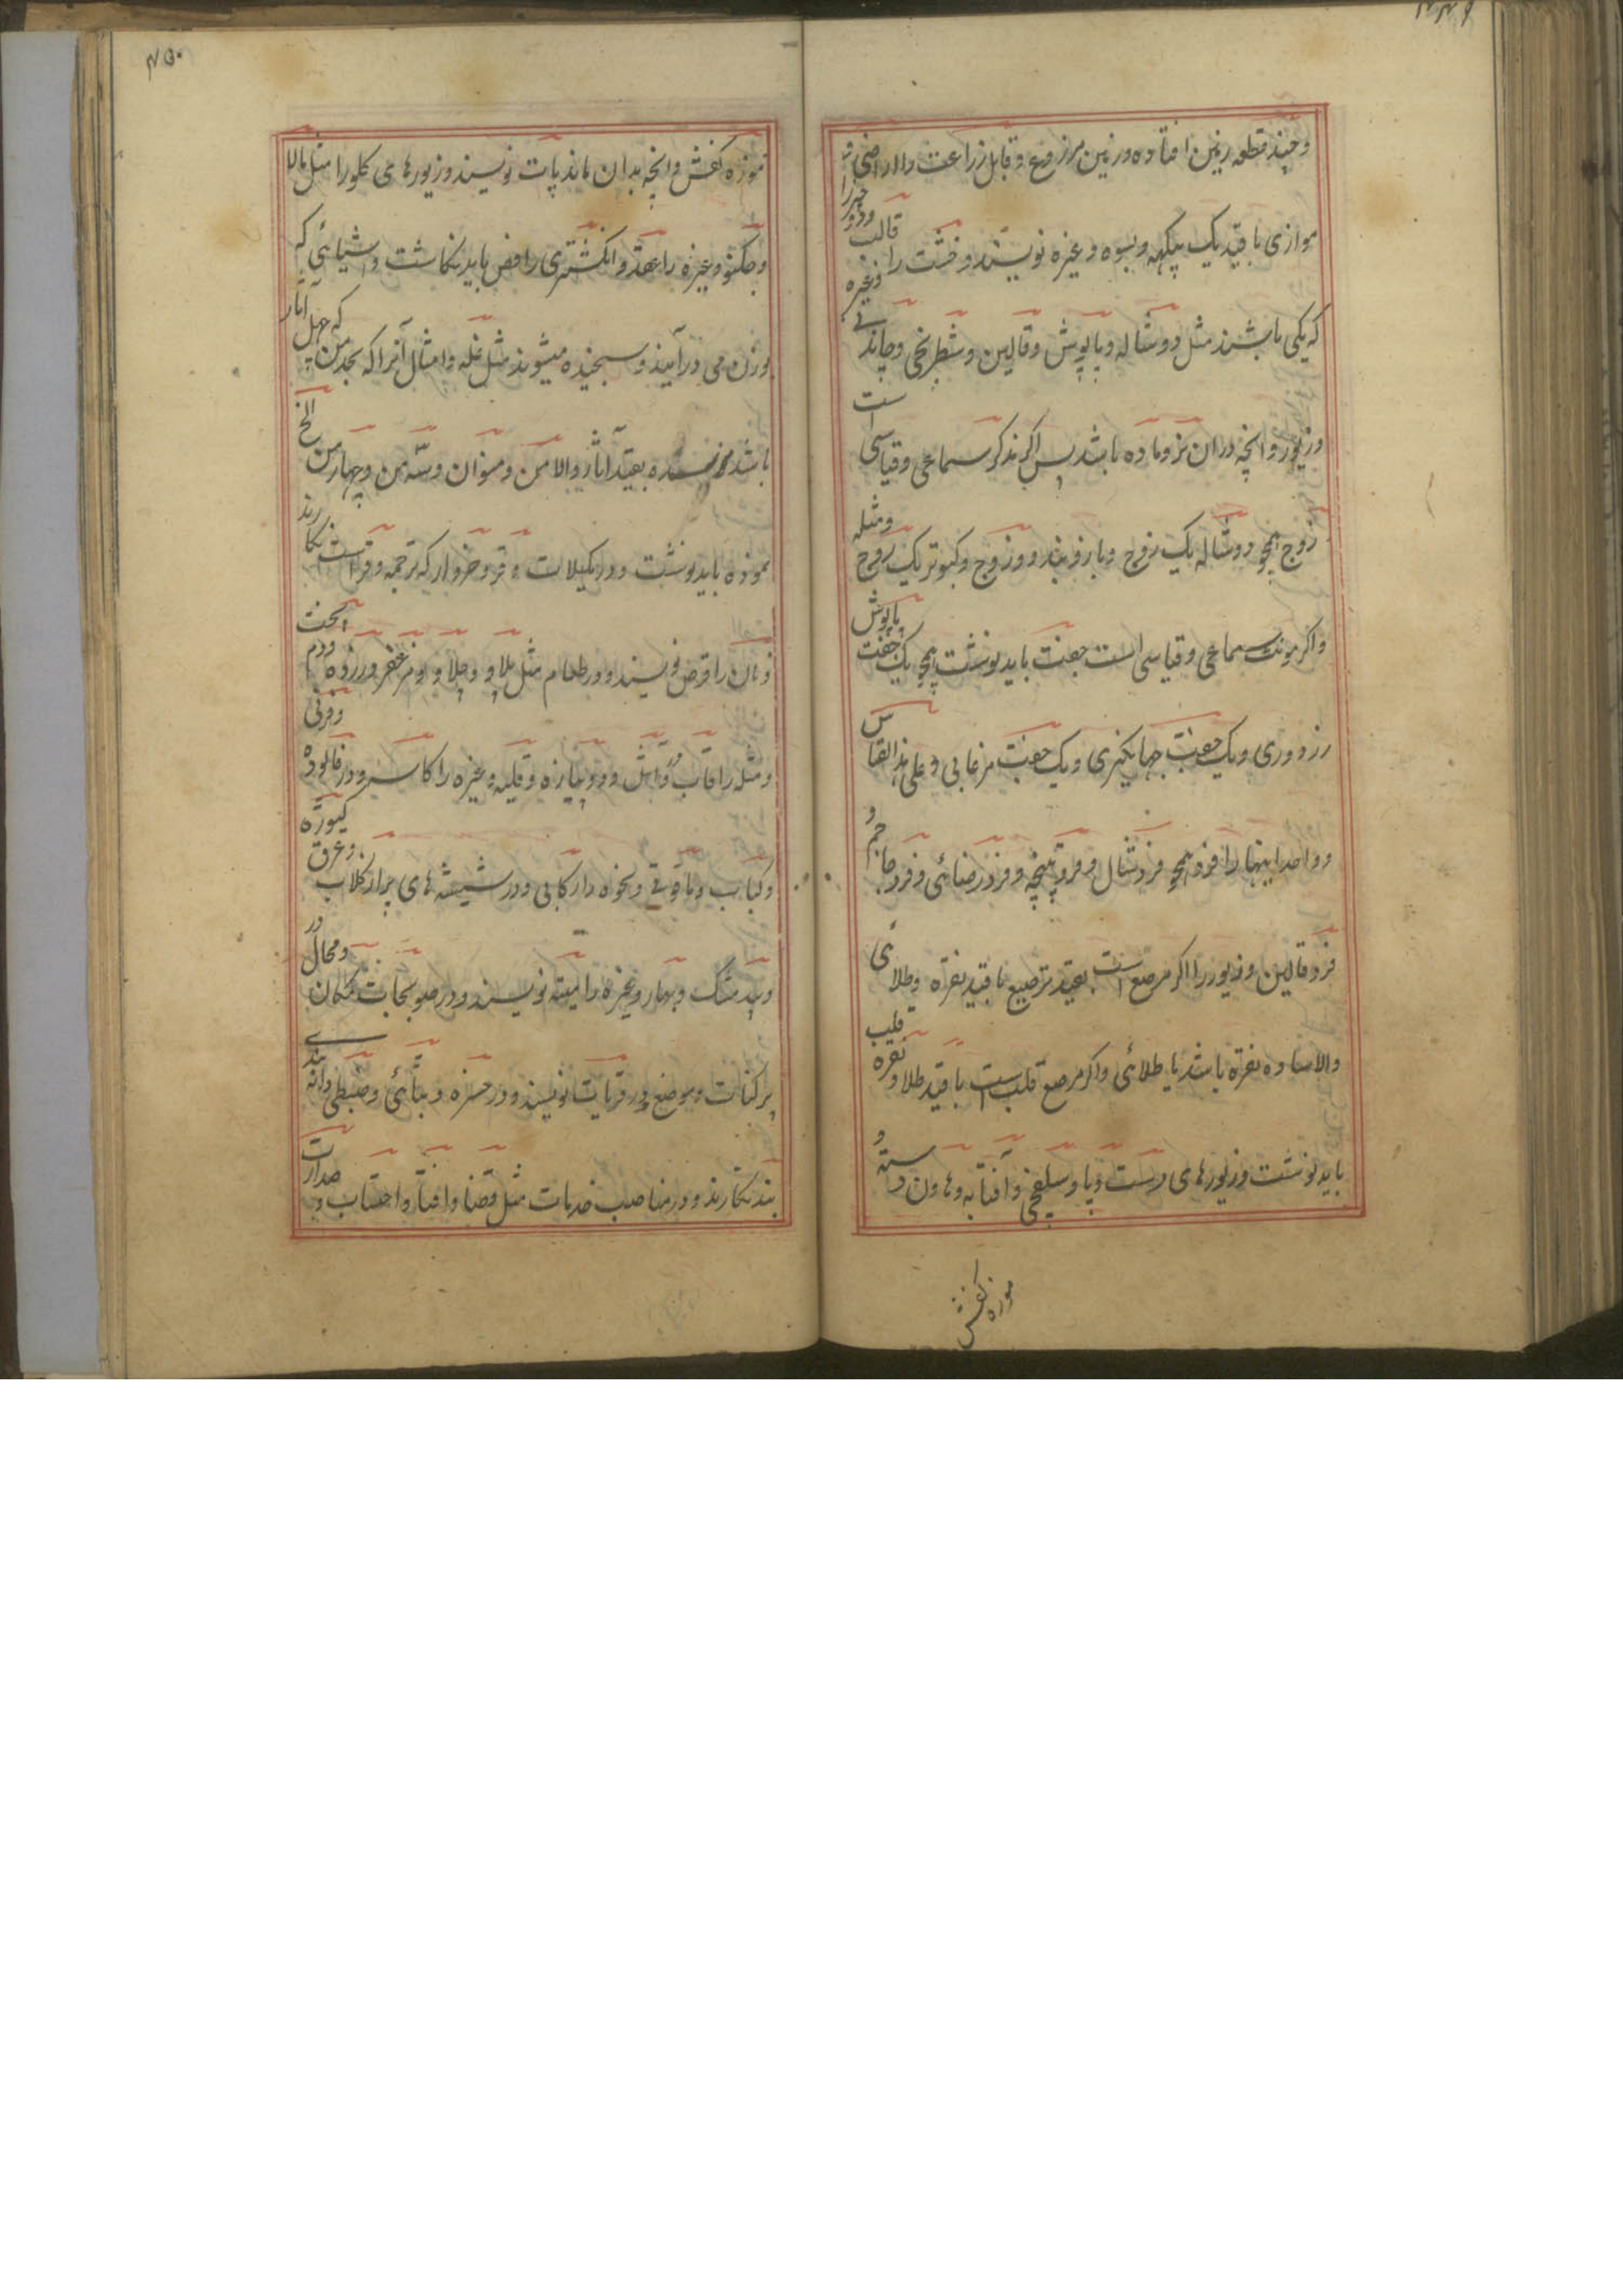 وچند قطعه زمین افتاده و زمین مزروع و قابل زراعت را اراضی
موازی با قید یک بیکهه و بسوه و غیره نویسند و خشت را قالب
که یکی باشند مثل دوشاله و پاپوش و قالین و شطرنجی و چاندنی وغیره
وزیور وانچه دران نر و ماده باشد پس اکر مذکر سماعی و قیاسی است
زوج همچو دوشاله یک زوج و بازوبند دو زوج و کبوتر یک زوج ومثله
واکر مونث سماعی و قیاسی است جفت باید نوشت همچو یک جفت پاپوش
زردوزی و یک جفت جهانکیری و یک جفت مرغابی و علی هذا القیاس
و واحد اینها را فرد همچو فرد شال و فرد و فرد رضائی و فرد جاجم و
فرد قالین و زیور را اکر مرصع است بقید ترصیع با قید نقره و طلائی
والا ساده نقره باشد یا طلائی واکر مرصع قلب است با قید طلا و نقره قلب
باید نوشت و زیورهای دست و پا و سلفچی و آفتابه و هاون دسته و
موزه کفش
۴۵۰
موزه کفش وانچه بدان ماند پات نویسند و زیورهای کلو را مثل مالا
و جکنو وغیره را عقد و انکشتری را فص باید نکاشت و اشیائی که
بوزن می درآیند و سنجیده میشوند مثل غله و امثال آنرا که بحد من که چهل آثار
باشد نرسیده بقید آثار والا من و منوان و سه من و چهار من الخ
نموده باید نوشت و در مکیلات و خروار که ترجمه وقر است نکارند
و نان را قرص نویسند و در طعام مثل پلاو و چلاو و مزعفر و زرده
ومثله را قاب و آش و دوپیازه و قلیه و غیره را کاسه و در فالوده وفرنی
وکباب و باقوتی و نخوه را رکابی و در شیشه های پر از کلاب وعرق کیوره
و بیدمشک و بهار و غیره را نویسند و در صوبجات مکان ومحال در
پرکنات و موضع در قریات نویسند و در
بند نکارند و در مناصب خدمات مثل قضا و افتا و احتساب و صدارت